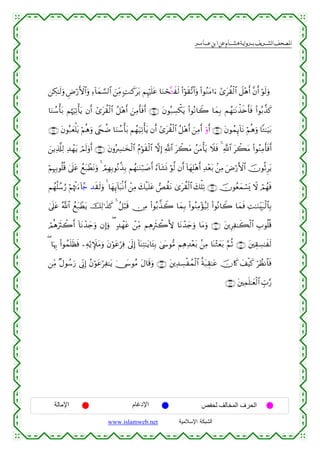 المصحف الشريف برواية هشام عن ابن عامر
وَلَوْ أَنَّ أَهْلَ ٱلْقُرَىٰٓ ءَامَنُوا۟ وَٱتَّقَوْا۟ لَفَتَّحْنَا عَلَيْهِم بَرَكَٰتٍ مِّنَ ٱلسَّمَآءِ وَٱلْأَرْضِ وَلَٰكِن
كَذَّبُوا۟ فَأَخَذْنَٰهُم بِمَا كَانُوا۟ يَكْسِبُونَ ۝ أَفَأَمِنَ أَهْلُ ٱلْقُرَىٰٓ أَن يَأْتِيَهُم بَأْسُنَا
بَيَٰتًا وَهُمْ نَآئِمُونَ ۝ أَوْ أَمِنَ أَهْلُ ٱلْقُرَىٰٓ أَن يَأْتِيَهُم بَأْسُنَا ضُحًى وَهُمْ يَلْعَبُونَ ۝
أَفَأَمِنُوا۟ مَكْرَ ٱللَّهِ ۚ فَلَا يَأْمَنُ مَكْرَ ٱللَّهِ إِلَّا ٱلْقَوْمُ ٱلْخَٰسِرُونَ ۝ أَوَلَمْ يَهْدِ لِلَّذِينَ
يَرِثُونَ ٱلْأَرْضَ مِنۢ بَعْدِ أَهْلِهَآ أَن لَّوْ نَشَآءُ أَصَبْنَٰهُم بِذُنُوبِهِمْ ۚ وَنَطْبَعُ عَلَىٰ قُلُوبِهِمْ
فَهُمْ لَا يَسْمَعُونَ ۝ تِلْكَ ٱلْقُرَىٰ نَقُصُّ عَلَيْكَ مِنْ أَنۢبَآئِهَا ۚ وَلَقَدْ جَآءَتْهُمْ رُسُلُهُم
بِٱلْبَيِّنَٰتِ فَمَا كَانُوا۟ لِيُؤْمِنُوا۟ بِمَا كَذَّبُوا۟ مِن قَبْلُ ۚ كَذَٰلِكَ يَطْبَعُ ٱللَّهُ عَلَىٰ
قُلُوبِ ٱلْكَٰفِرِينَ ۝ وَمَا وَجَدْنَا لِأَكْثَرِهِم مِّنْ عَهْدٍ ۖ وَإِن وَجَدْنَآ أَكْثَرَهُمْ
لَفَٰسِقِينَ ۝ ثُمَّ بَعَثْنَا مِنۢ بَعْدِهِم مُّوسَىٰ بِـَٔايَٰتِنَآ إِلَىٰ فِرْعَوْنَ وَمَلَإِي۟هِۦ فَظَلَمُوا۟ بِهَا ۖ
فَٱنظُرْ كَيْفَ كَانَ عَٰقِبَةُ ٱلْمُفْسِدِينَ ۝ وَقَالَ مُوسَىٰ يَٰفِرْعَوْنُ إِنِّى رَسُولٌ مِّن
رَّبِّ ٱلْعَٰلَمِينَ ۝
الحرف المخالف لحفص الإدغام الإمالة
الشبكة الإسلامية www.islamweb.net